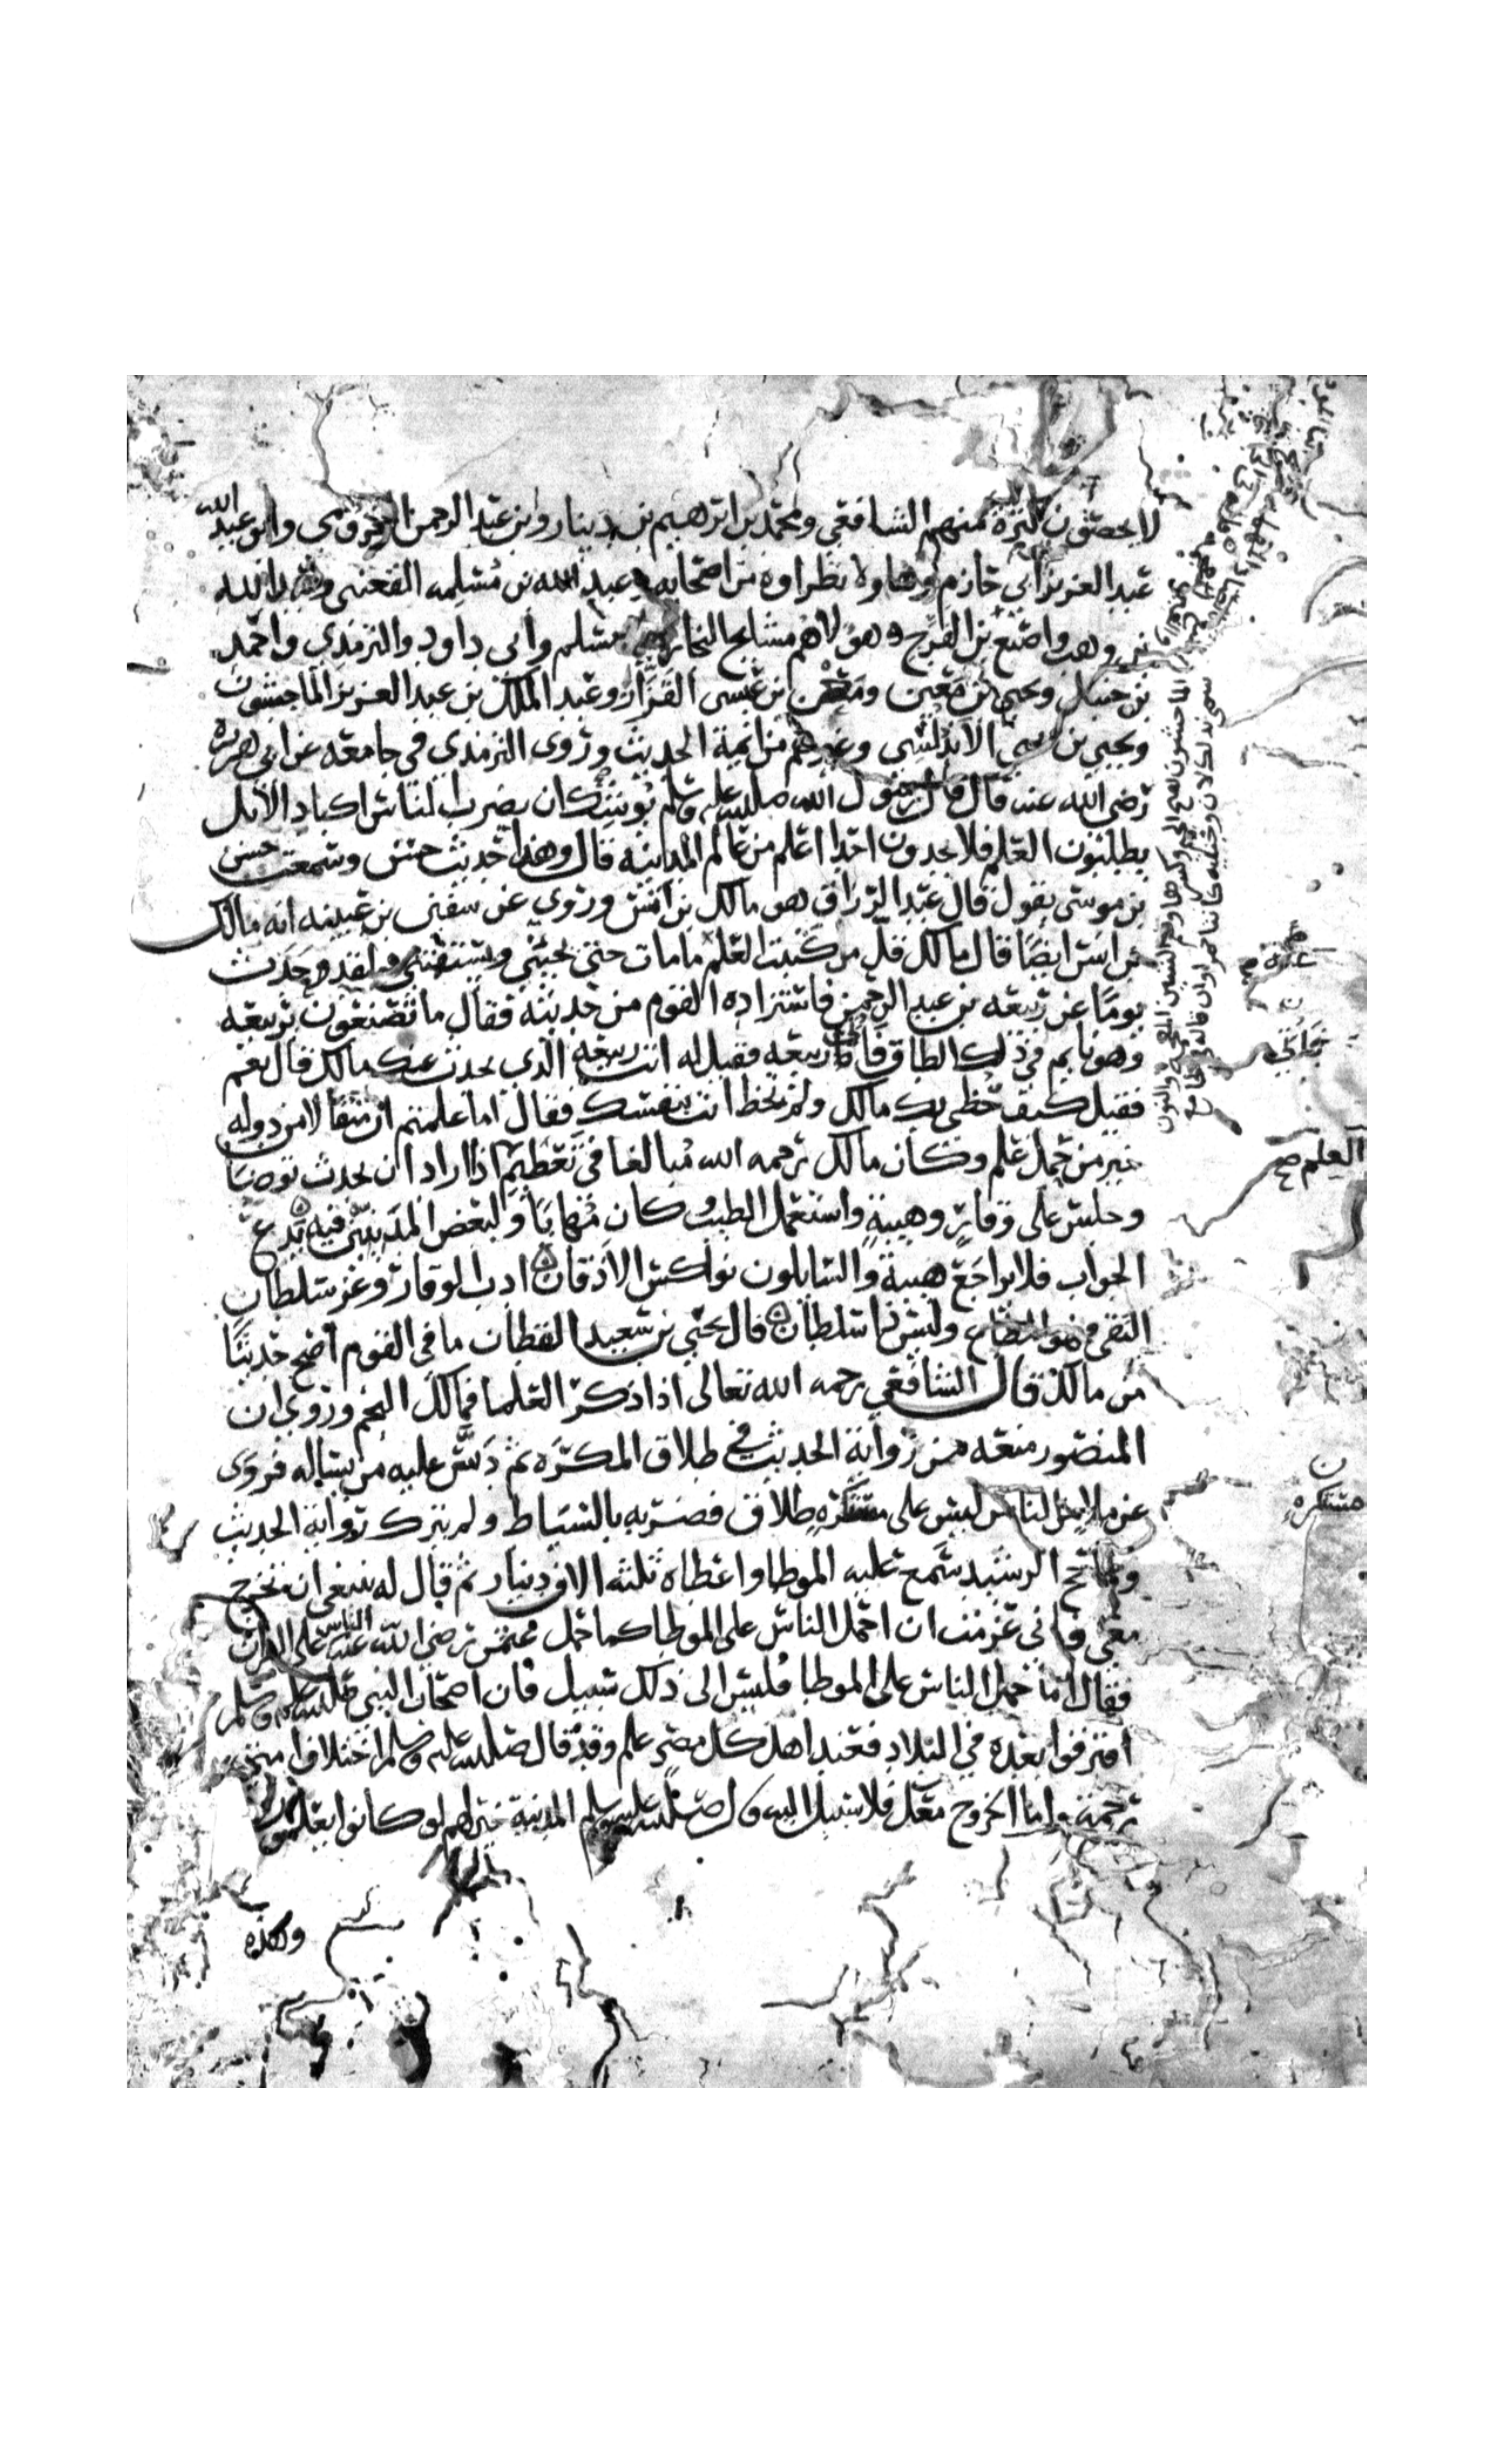 لا يحصون كثرة منهم الشافعي ومحمد بن ابرهيم بن دينار وابن عبد الرحمن المخزومي وابو عبد الله
عبد العزيز ابن ابي حازم وهاولا نظراوه من اصحابه وعبد الله بن مسلمه القعنبي وعبد الله
بن وهب واصبغ بن الفرج وهولا هم مشايخ البخاري ومسلم وابي داود والترمذي واحمد
بن حنبل ويحيى بن معين ومعن بن عيسى القزاز وعبد الملك بن عبد العزيز الماجشون
ويحيى بن يحيى الاندلسي وغيرهم من ايمة الحديث وروى الترمذي في جامعه عن ابي هريرة
رضي الله عنه قال قال رسول الله صلى الله عليه وسلم يوشك ان يضرب الناس اكباد الابل
يطلبون العلم فلا يجدون احدا اعلم من عالم المدينه قال وهذا حديث حسن وسمعت حسن
بن موسى يقول قال عبد الرزاق هو مالك بن انس وروي عن سفين بن عيينه انه مالك
بن انس ايضا قال مالك قل من كتبت العلم ما مات حتى يجيئني ويستفتيني ولقد حدث
يوما عن ربيعه بن عبد الرحمن فاستزاده القوم من حديثه فقال ما تصنعون بربيعه
وهو نايم في ذلك الطاق فاتى ربيعه فقيل له انت ربيعه الذي يحدث عنك مالك قال نعم
فقيل كيف حظي بك مالك ولم تحظ انت بنفسك فقال اما علمتم ان مثقالا من دوله
خير من حمل علم وكان مالك رحمه الله مبالغا في تعظيم اذا اراد ان يحدث توضا
وجلس على وقار وهيبة واستعمل الطيب وكان مهابا ولبعض المدينيين فيه يدع
الجواب فلا يراجع هيبة والسايلون نواكس الاذقان ادب الوقار وعز سلطان
التقى فهو المطاع وليس ذا سلطان قال يحيى بن سعيد القطان ما في القوم اصح حديثا
من مالك قال الشافعي رحمه الله تعالى اذا ذكر العلما فمالك النجم وروي ان
المنصور منعه من رواية الحديث في طلاق المكره ثم دس عليه من يساله فروى
على ملا من الناس ليس على مستكره طلاق فضربه بالسياط ولم يترك رواية الحديث
ولما حج الرشيد سمع عليه الموطا واعطاه ثلثه الاف دينار ثم قال له ينبغي ان تخرج
معي فاني عزمت ان احمل الناس على الموطا كما حمل عثمن رضي الله عنه الناس على القران
فقال اما حمل الناس على الموطا فليس الى ذلك سبيل فان اصحاب النبي صلى الله عليه وسلم
افترقوا بعده في البلاد فعند اهل كل مصر علم وقد قال صلى الله عليه وسلم اختلاف امتي
رحمة واما الخروج معك فلا سبيل اليه قال صلى الله عليه وسلم المدينة خير لهم لو كانوا يعلمون
وهذه
العلم صح
مستكره